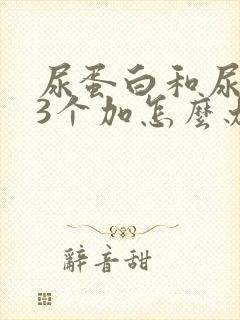 尿蛋白和尿
3个加怎麽
辭音甜